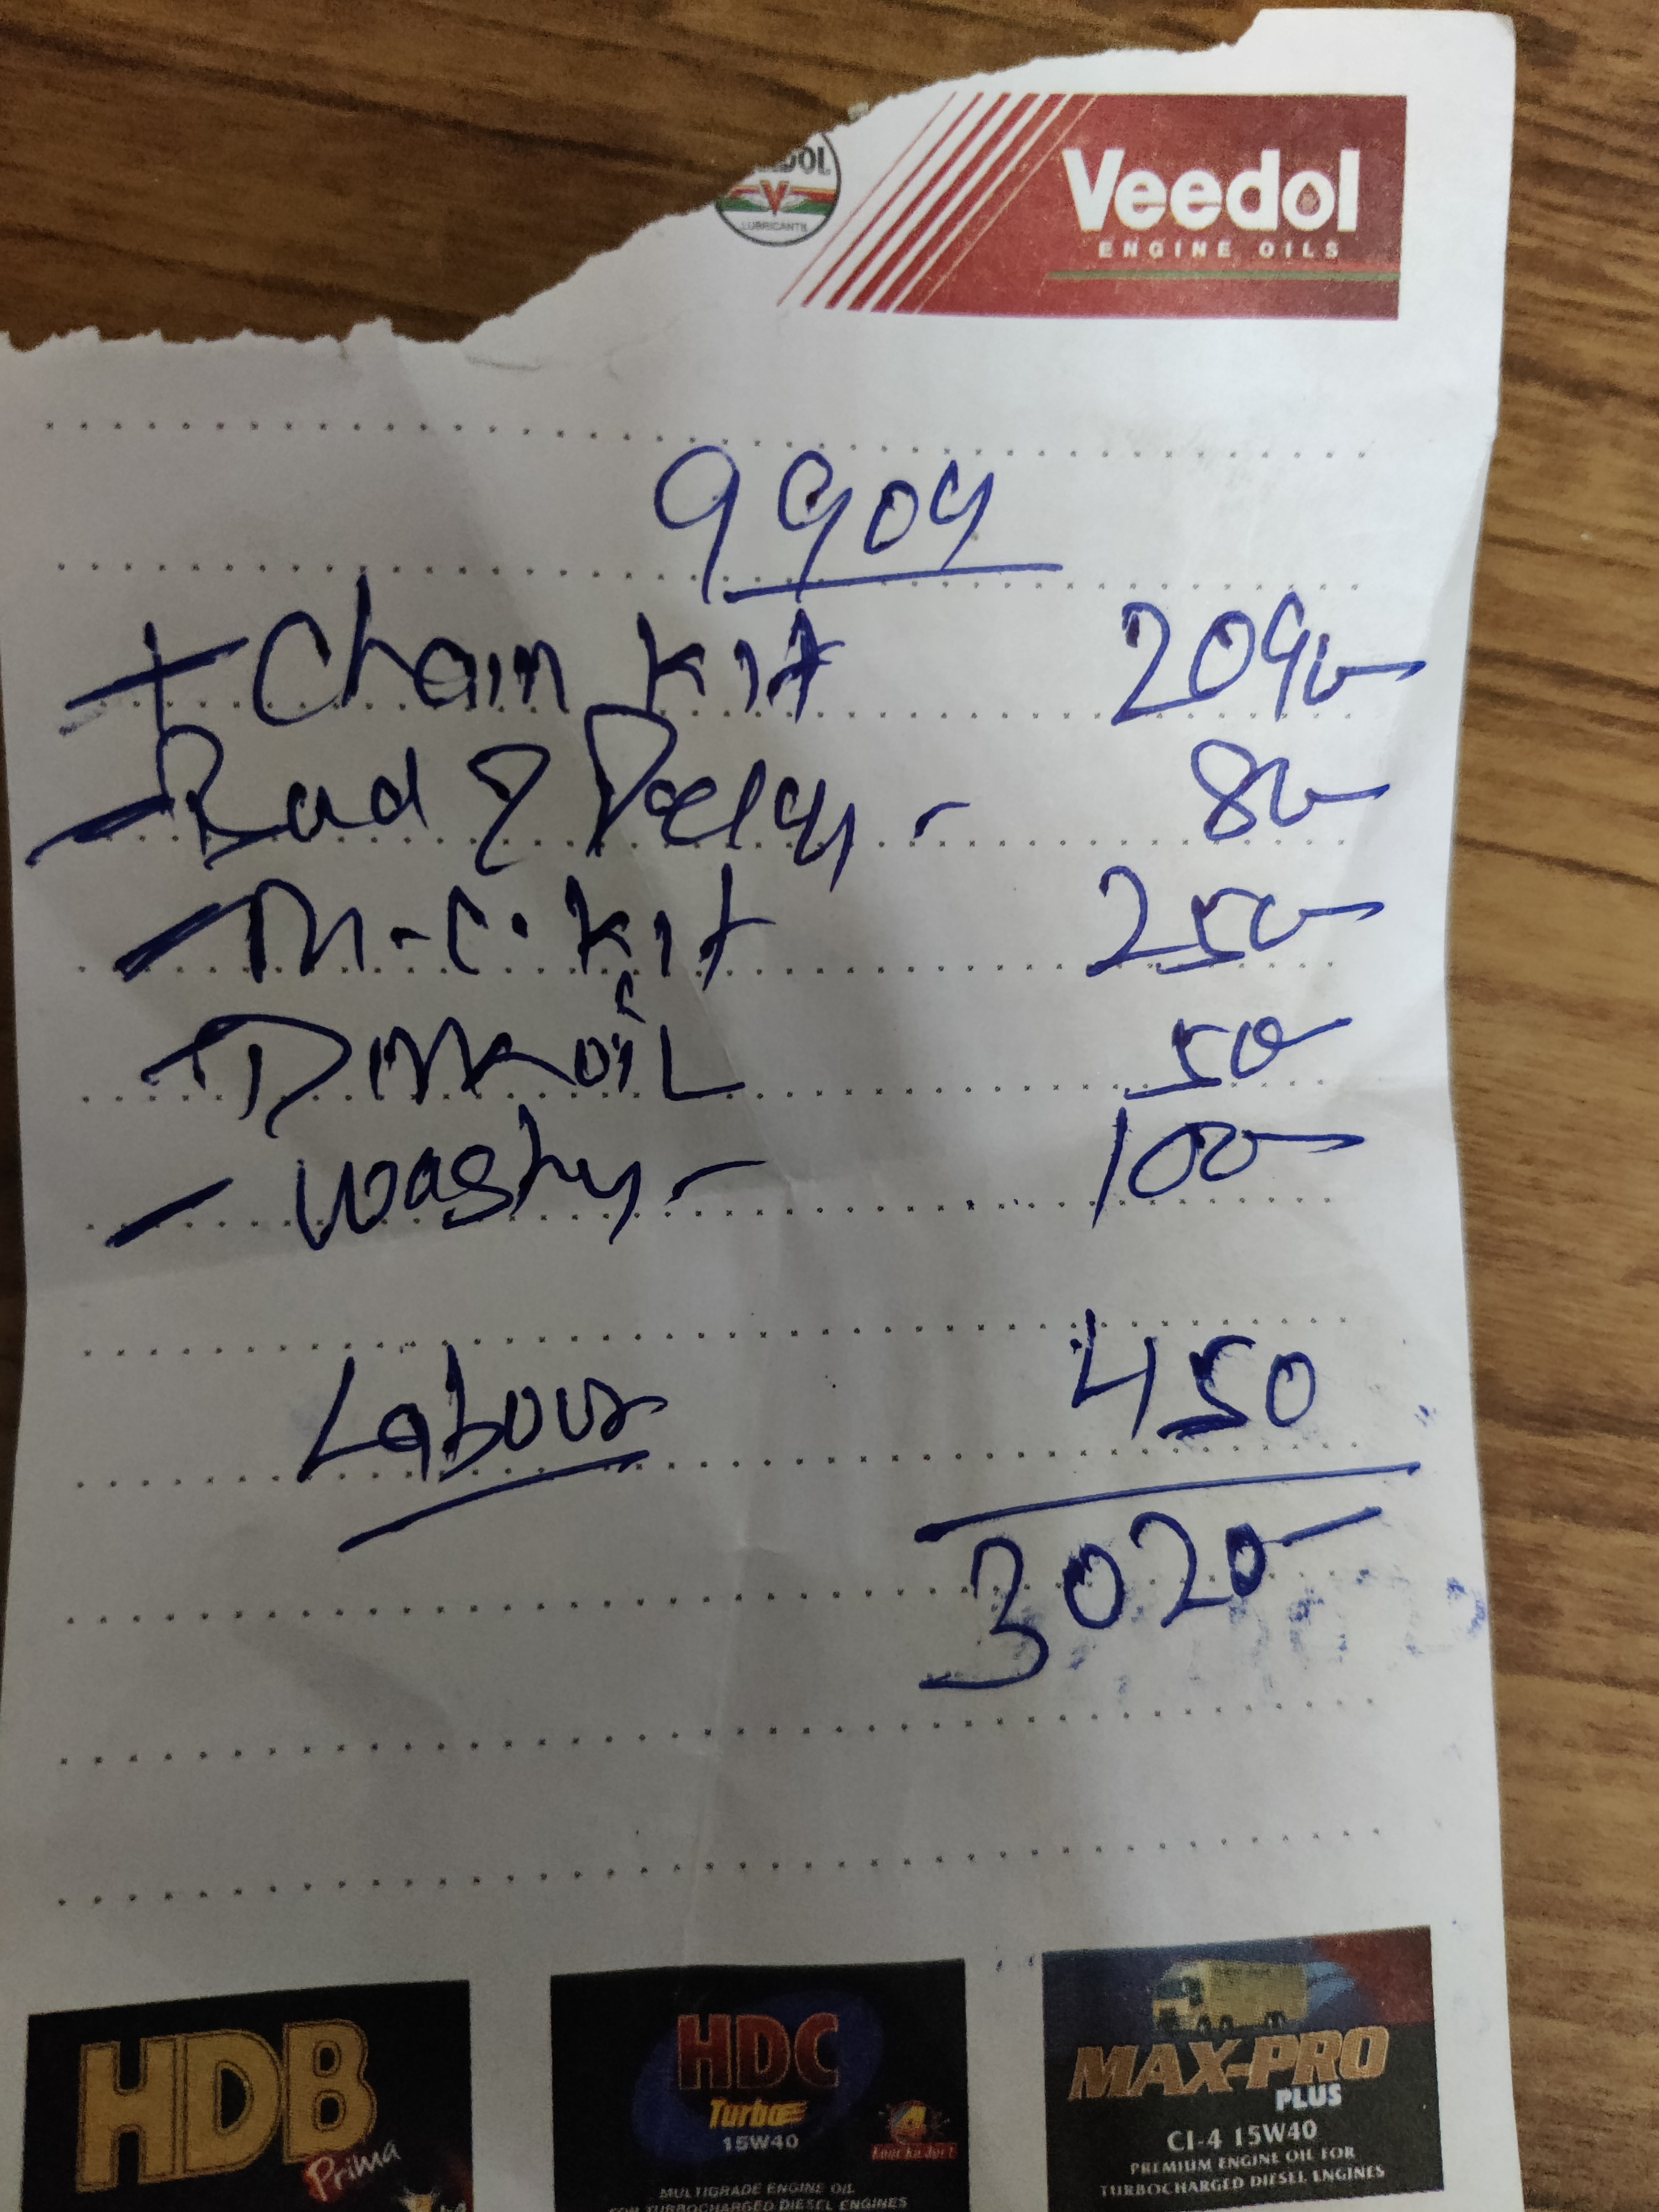 VEEDOL
LUBRICANTS
Veedol
ENGINE OILS
9904
Chain Kit 2090
80
M.C. Kit 250
50
Washy 100
Labour 450
3020
HDB
Prima
HDC
Turbo
15W40
4
MULTIGRADE ENGINE OIL
FOR TURBOCHARGED DIESEL ENGINES
MAX-PRO
PLUS
CI-4 15W40
PREMIUM ENGINE OIL FOR
TURBOCHARGED DIESEL ENGINES